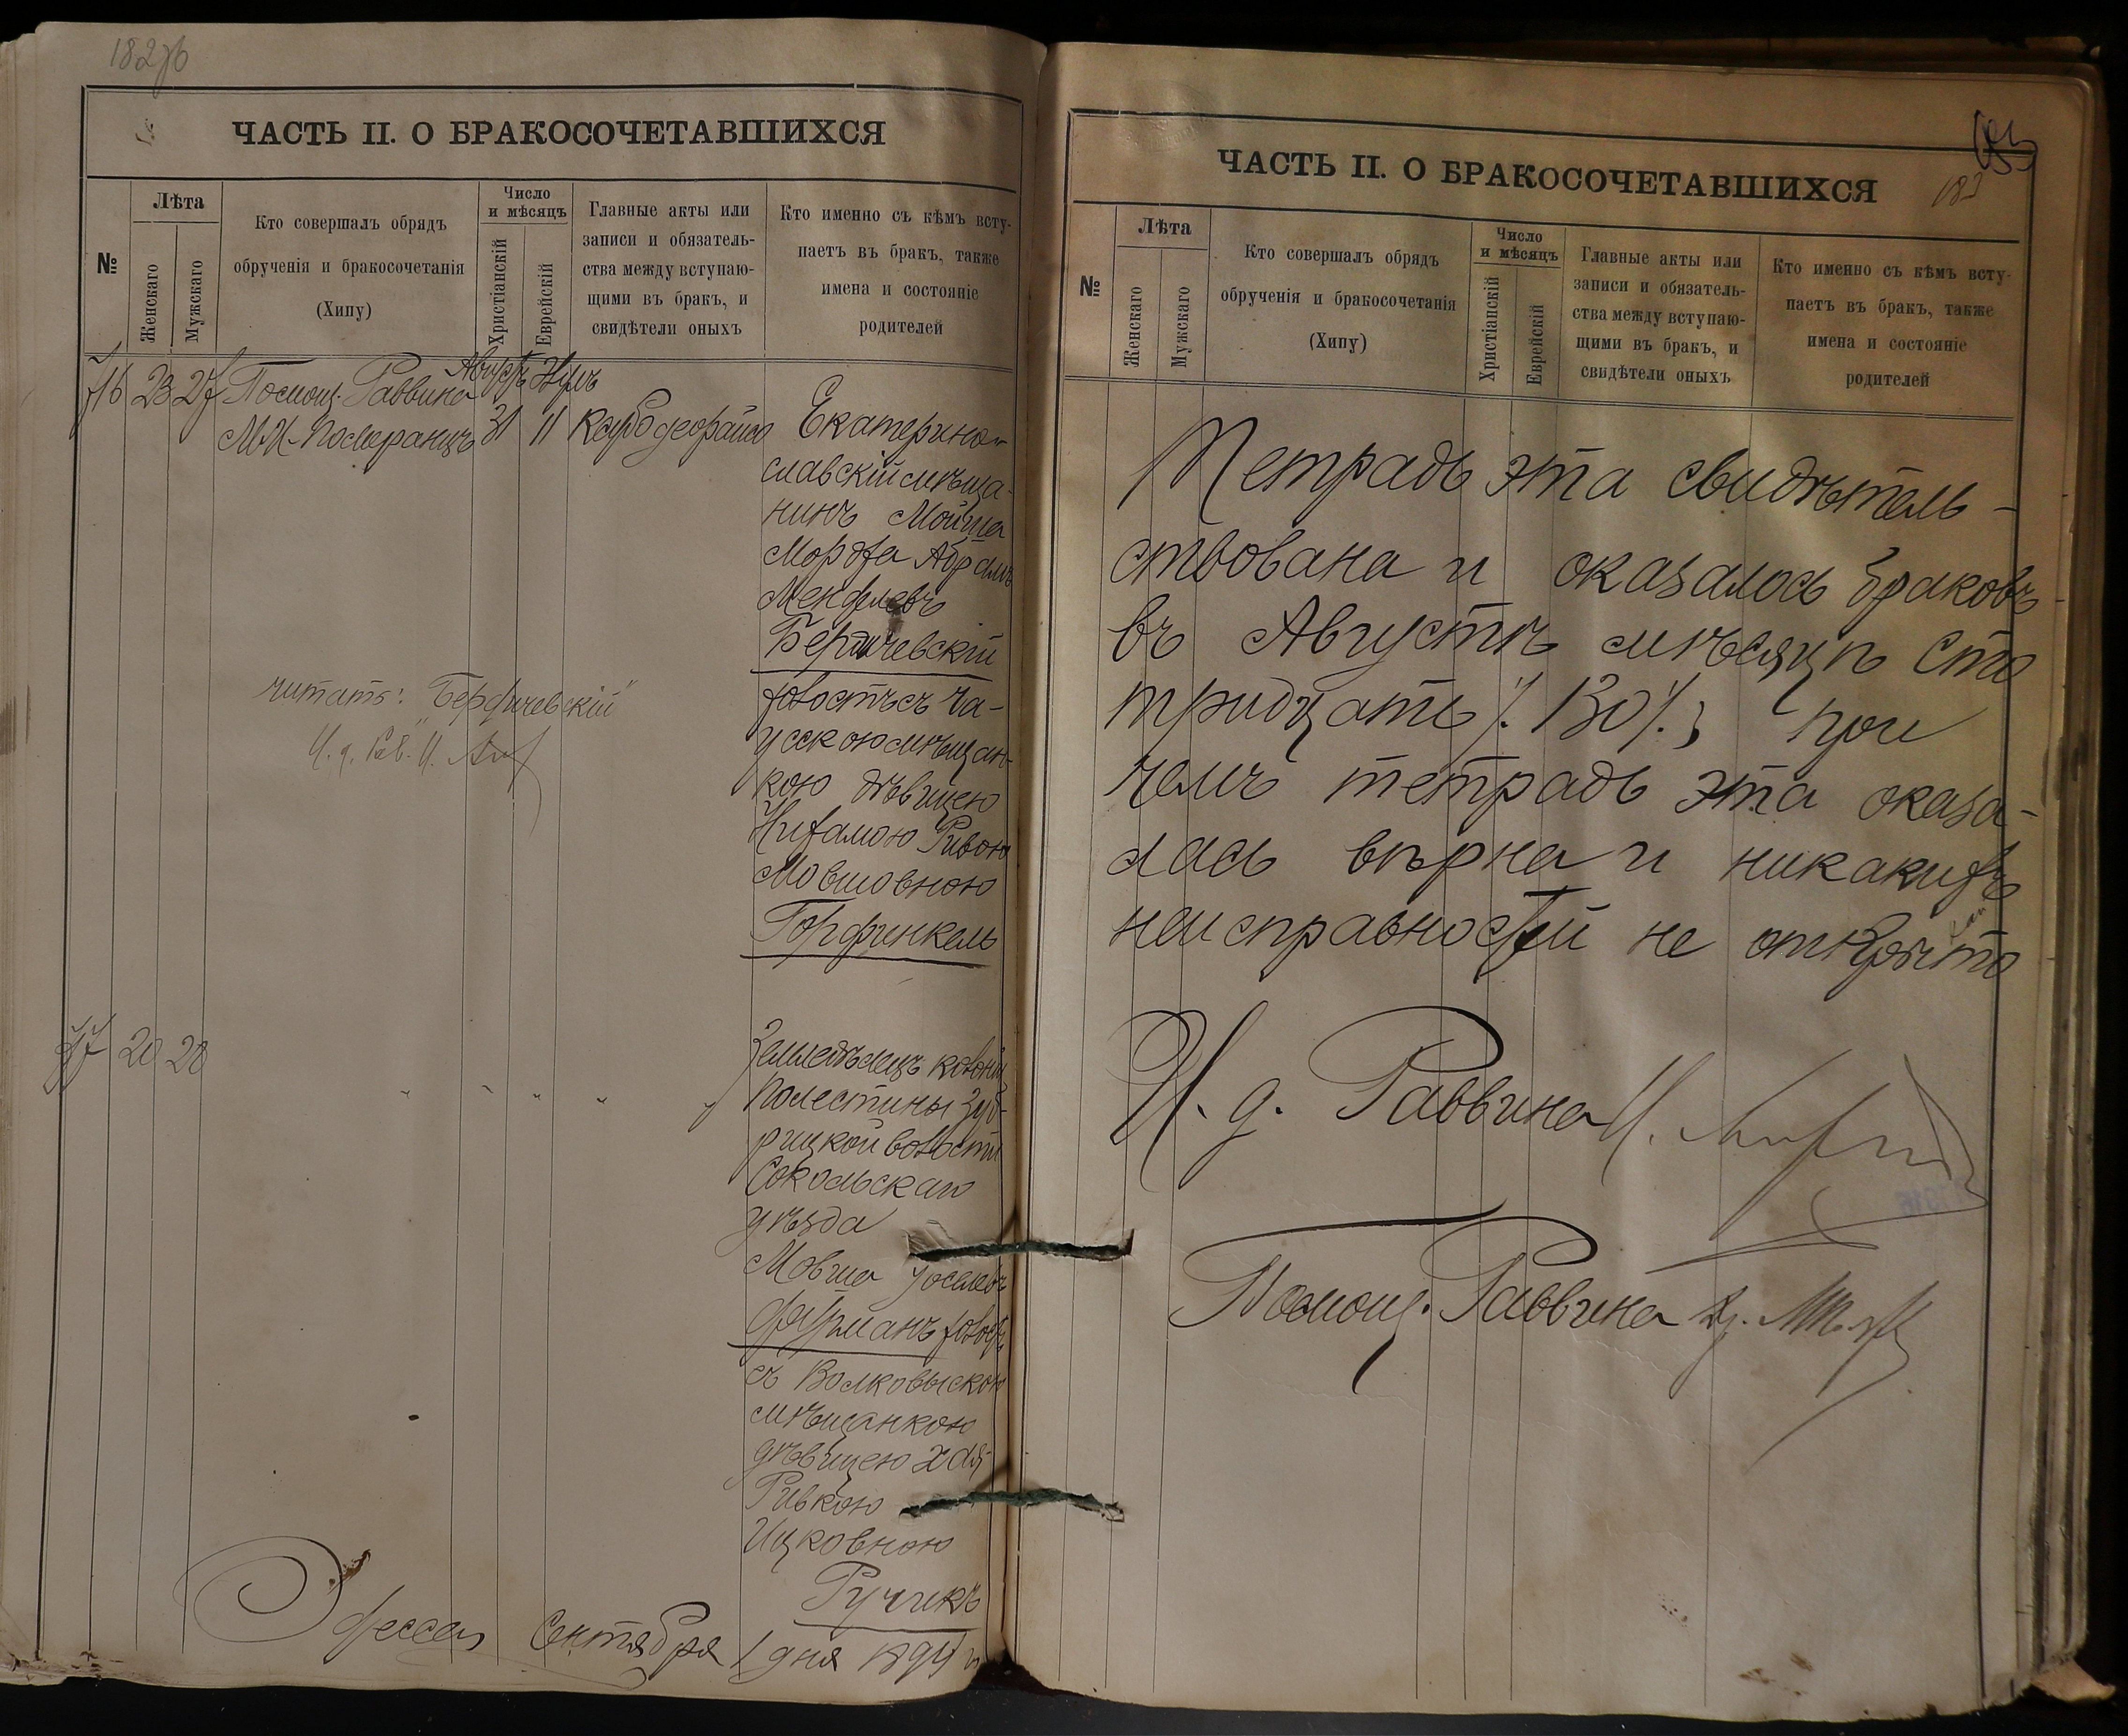 182об
ЧАСТЬ II. О БРАКОСОЧЕТАВШИХСЯ
№
Лѣта
Женскаго
Мужскаго
Кто совершалъ обрядъ
обрученія и бракосочетанія
(Хипу)
Число
и мѣсяцъ
Христіанскій
Еврейскій
Главные акты или
записи и обязатель-
ства между вступаю-
щими въ бракъ, и
свидѣтели оныхъ
Кто именно съ кѣмъ всту-
паетъ въ бракъ, также
имена и состояніе
родителей
716 23 27 Помощ. Раввина Августъ
31 11
Екатерино-
славскій мѣща-
нинъ Мойша
Мордха Абрамъ
Менделевъ
Бердичевскій
холостъ съ Ча-
усскою мѣщан-
кою дѣвицею
Нехамою Ривою
Мовшовною
Горфинкель
читать: "Бердичевскій"
И. д. Рав. И.
717 20 28
Земледѣлецъ колоніи
Полестины
волости
Сокольскаго
уѣзда
Мовша Іоселевъ
Фурманъ холостъ
съ Волковыскою
мѣщанкою
дѣвицею Хая
Ривкою
Ицковною
Ручикъ
Одесса Сентября 1 дня 1894 г.
183
ЧАСТЬ II. О БРАКОСОЧЕТАВШИХСЯ
№
Лѣта
Женскаго
Мужскаго
Кто совершалъ обрядъ
обрученія и бракосочетанія
(Хипу)
Число
и мѣсяцъ
Христіанскій
Еврейскій
Главные акты или
записи и обязатель-
ства между вступаю-
щими въ бракъ, и
свидѣтели оныхъ
Кто именно съ кѣмъ всту-
паетъ въ бракъ, также
имена и состояніе
родителей
Тетрадь эта свидѣтель-
ствована и оказалось браковъ
въ Августѣ мѣсяцѣ сто
тридцать /.130/.; при
чемъ тетрадь эта оказа-
лась вѣрна и никакихъ
неисправностей не открыто
И. д. Раввина И.
Помощ. Раввина